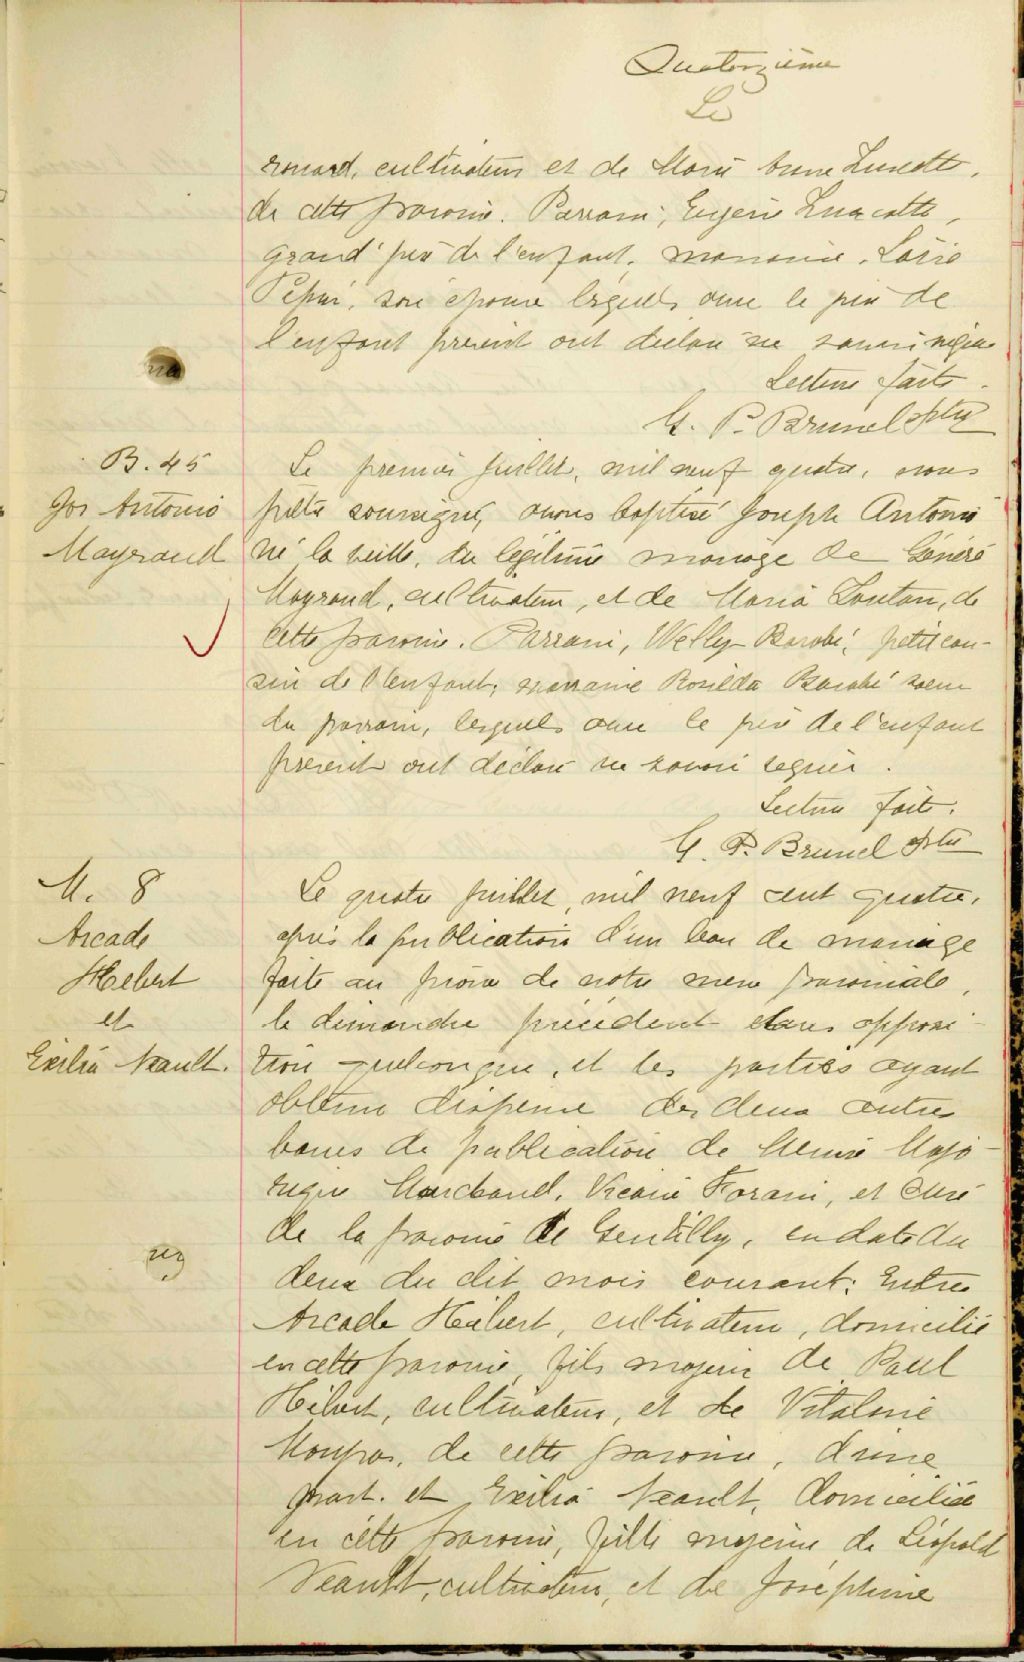 Quatorzième
Le
rouard, cultivateur et de Marie Anne Turcotte,
de cette paroisse. Parrain, Eugène Turcotte,
grand'père de l'enfant, marraine,
Pépin, son épouse lesquels avec le père de
l'enfant présent ont déclaré ne savoir signer
Lecture faite.
G. P. Brunel Ptre
B. 45
Jos Antonio
Mayrand
Le premier juillet, mil neuf quatre, nous
prêtre soussigné, avons baptisé Joseph Antonio
né la veille, du légitime mariage de Généré
Mayrand, cultivateur, et de Maria Loutan, de
cette paroisse. Parrain, Welly Barabé, petit cou-
sin de l'enfant, marraine Rosilda Barabé soeur
du parrain, lesquels avec le père de l'enfant
présent ont déclaré ne savoir signer.
Lecture faite.
G. P. Brunel Ptre
M. 8
Arcade
Hébert
et
Exilia Neault.
Le quatre juillet, mil neuf cent quatre,
après la publication d'un ban de mariage
faite au prône de notre messe paroissiale,
le dimanche précédent sans opposi-
tion quelconque, et les parties ayant
obtenu dispense des deux autres
bans de publication de Messire Majo-
rique Marchand, Vicaire Forain, et Curé
de la paroisse de Gentilly, en date du
deux du dit mois courant; Entre
Arcade Hébert, cultivateur, domicilié
en cette paroisse, fils majeur de Paul
Hébert, cultivateur, et de Vitaline
Moupas, de cette paroisse, d'une
part. et Exilia Neault, domiciliée
en cette paroisse, fille mineure de Léopold
Neault, cultivateur, et de Joséphine